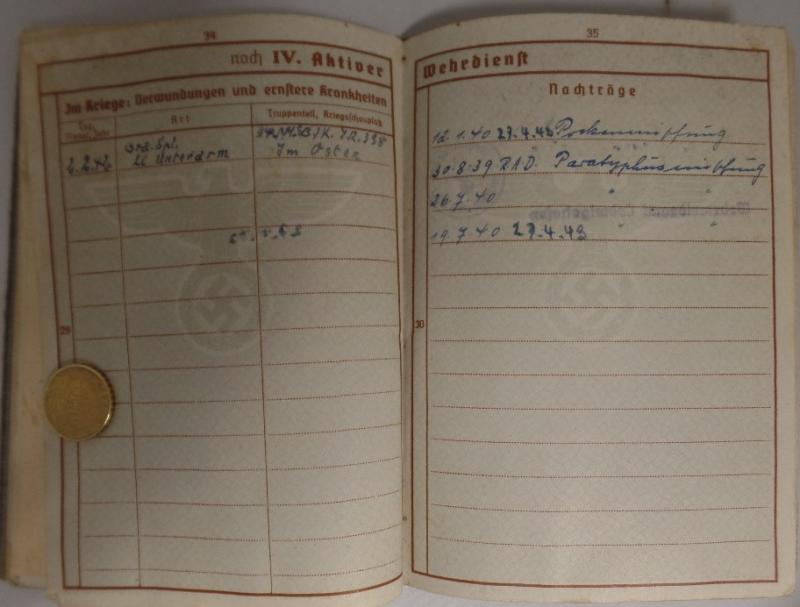 34
noch IV. Aktiver
Im Kriege: Verwundungen und ernstere Krankheiten
Tag, Monat, Jahr
Art
Truppenteil, Kriegsschauplatz
2.2.42
Gra.Spl.
li Unterarm
I.R.398
Im Osten
29
35
Wehrdienst
Nachträge
12.1.40 27.4.42 Pockenimpfung
30.8.39 RAD. Paratyphusimpfung
26.7.40 " "
19.7.40 27.4.43 " "
30